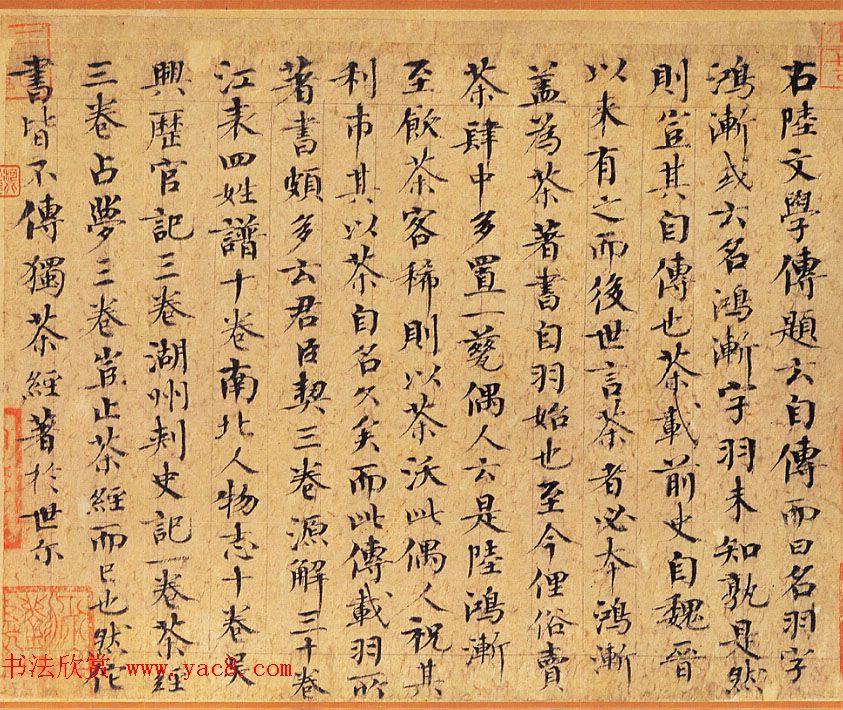 右陸文學傳題云自傳而曰名羽字
鴻漸或云名鴻漸字羽未知孰是然
則豈其自傳也茶載前史自魏晉
以来有之而後世言茶者必本鴻漸
盖為茶著書自羽始也至今俚俗賣
茶肆中多置一甆偶人云是陸鴻漸
至飲茶客稀則以茶沃此偶人祝其
利市其以茶自名久矣而此傳載羽所
著書頗多云君臣契三卷源解三十卷
江表四姓譜十卷南北人物志十卷吳
興歷官記三卷湖州刺史記一卷茶經
三卷占夢三卷豈止茶經而已也然佗
書皆不傳獨茶經著於世尔
书法欣赏 www.yac8.com